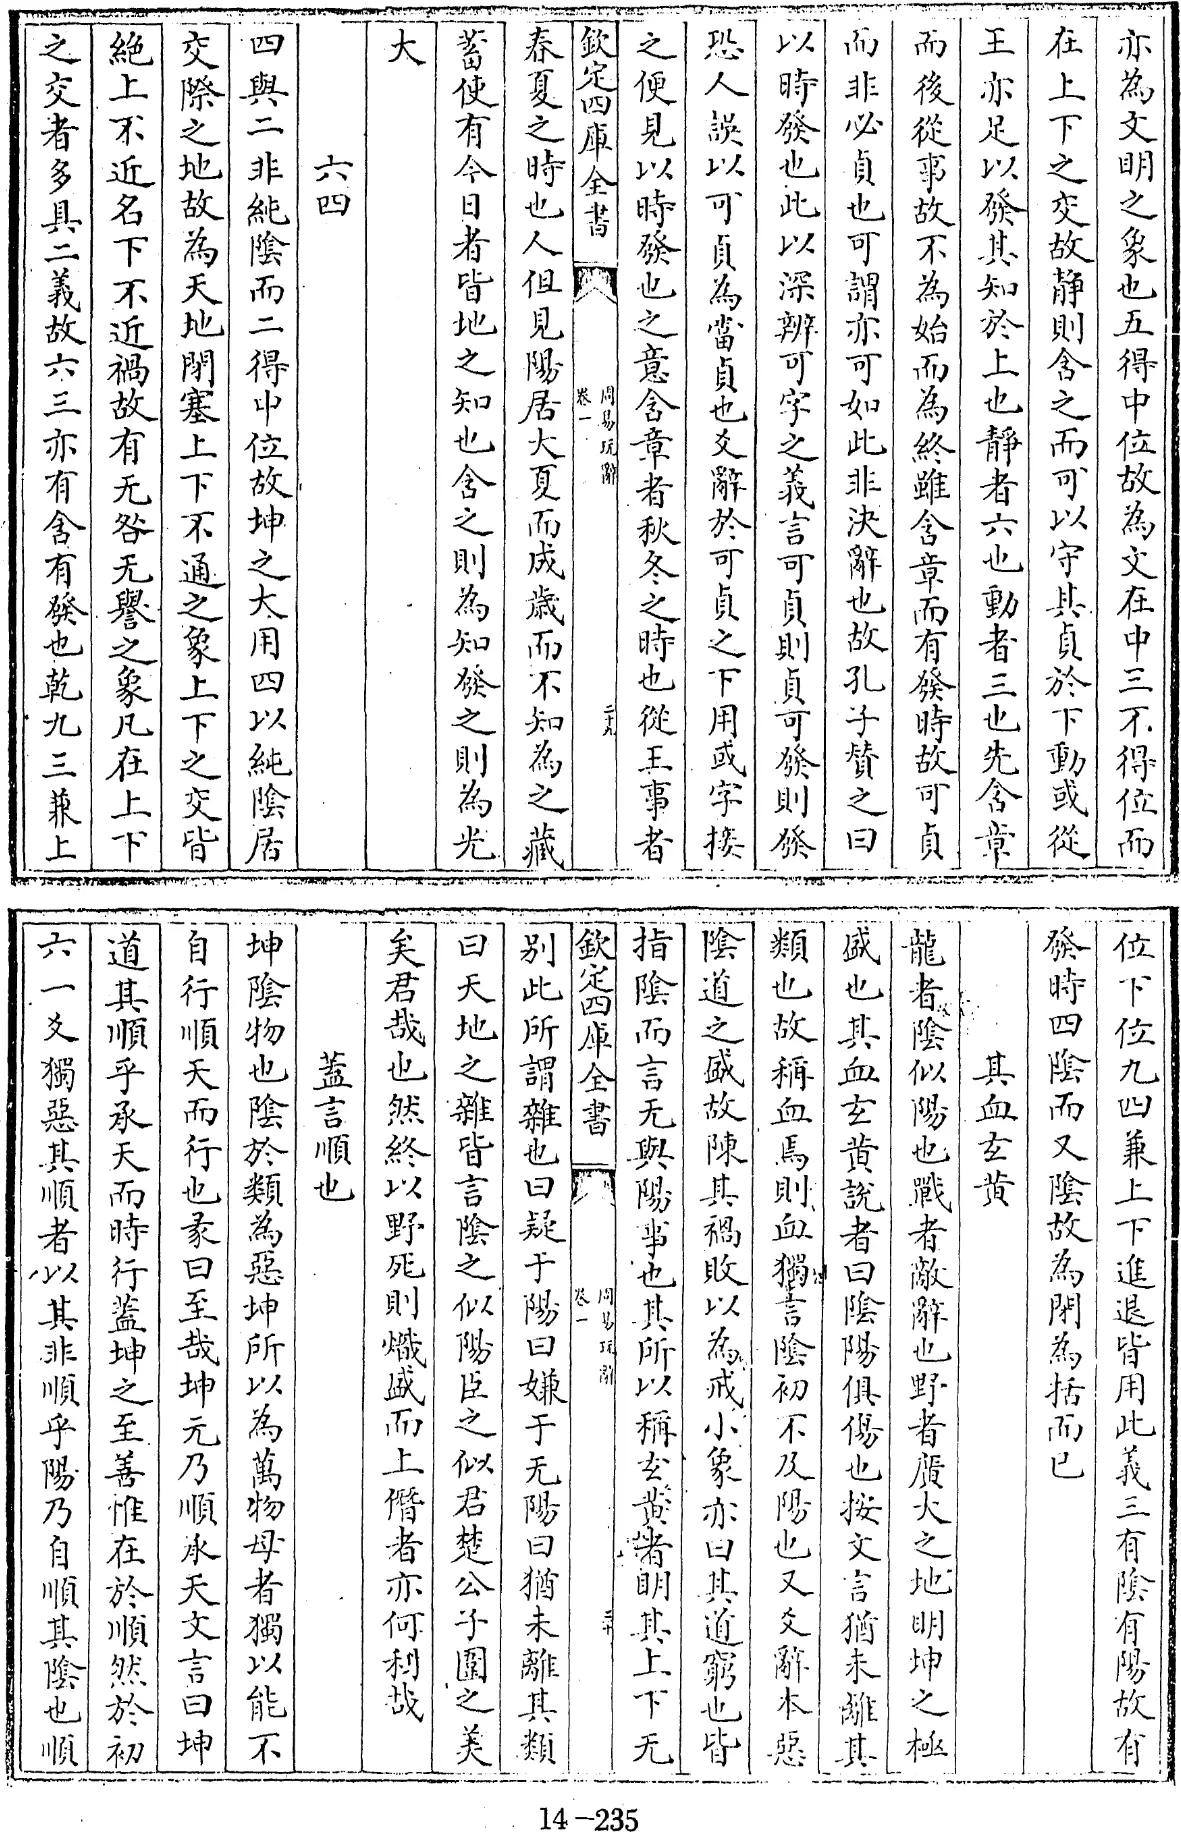 亦為文明之象也五得中位故為文在中三不得位而
在上下之交故静則含之而可以守其貞於下動或從
王亦足以發其知於上也靜者六也動者三也先含章
而後從事故不為始而為終雖含章而有發時故可貞
而非必貞也可謂亦可如此非決辭也故孔子贊之曰
以時發也此以深辨可字之義言可貞則貞可發則發
恐人誤以可貞為當貞也爻辭於可貞之下用或字接
之便見以時發也之意含章者秋冬之時也從王事者
欽定四庫全書
周易玩辭
卷一
二十九
春夏之時也人但見陽居大夏而成歲而不知為之藏
蓄使有今日者皆地之知也含之則為知發之則為光
大
六四
四與二非純陰而二得中位故坤之大用四以純陰居
交際之地故為天地閉塞上下不通之象上下之交皆
絕上不近名下不近禍故有无咎无譽之象凡在上下
之交者多具二義故六三亦有含有發也乾九三兼上
位下位九四兼上下進退皆用此義三有陰有陽故有
發時四陰而又陰故為閉為括而已
其血玄黄
龍者陰似陽也戰者敵辭也野者廣大之地明坤之極
盛也其血玄黄說者曰陰陽俱傷也按文言猶未離其
類也故稱血焉則血獨言陰初不及陽也又爻辭本惡
陰道之盛故陳其禍敗以為戒小象亦曰其道窮也皆
指陰而言无與陽事也其所以稱玄黄者明其上下无
欽定四庫全書
周易玩辭
卷一
三十
别此所謂雜也曰疑于陽曰嫌于无陽曰猶未離其類
曰天地之雜皆言陰之似陽臣之似君楚公子圍之美
矣君哉也然終以野死則熾盛而上僭者亦何利哉
蓋言順也
坤陰物也陰於類為惡坤所以為萬物母者獨以能不
自行順天而行也彖曰至哉坤元乃順承天文言曰坤
道其順乎承天而時行蓋坤之至善惟在於順然於初
六一爻獨惡其順者以其非順乎陽乃自順其陰也順
14-235